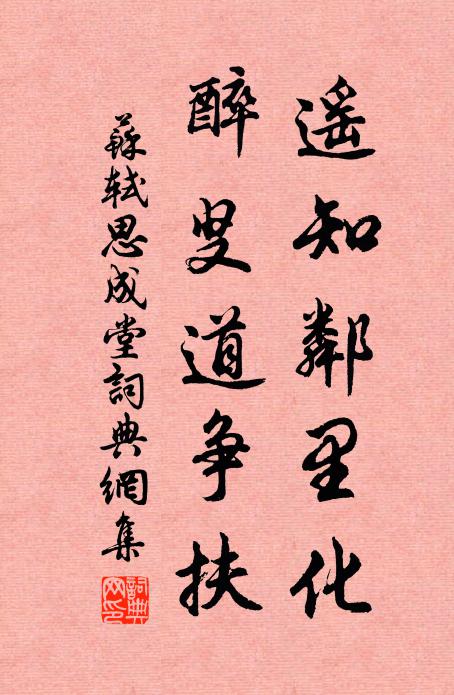 遥知鄰里化
醉叟道争扶
蘇軾思成堂詞典網集
詞典网印